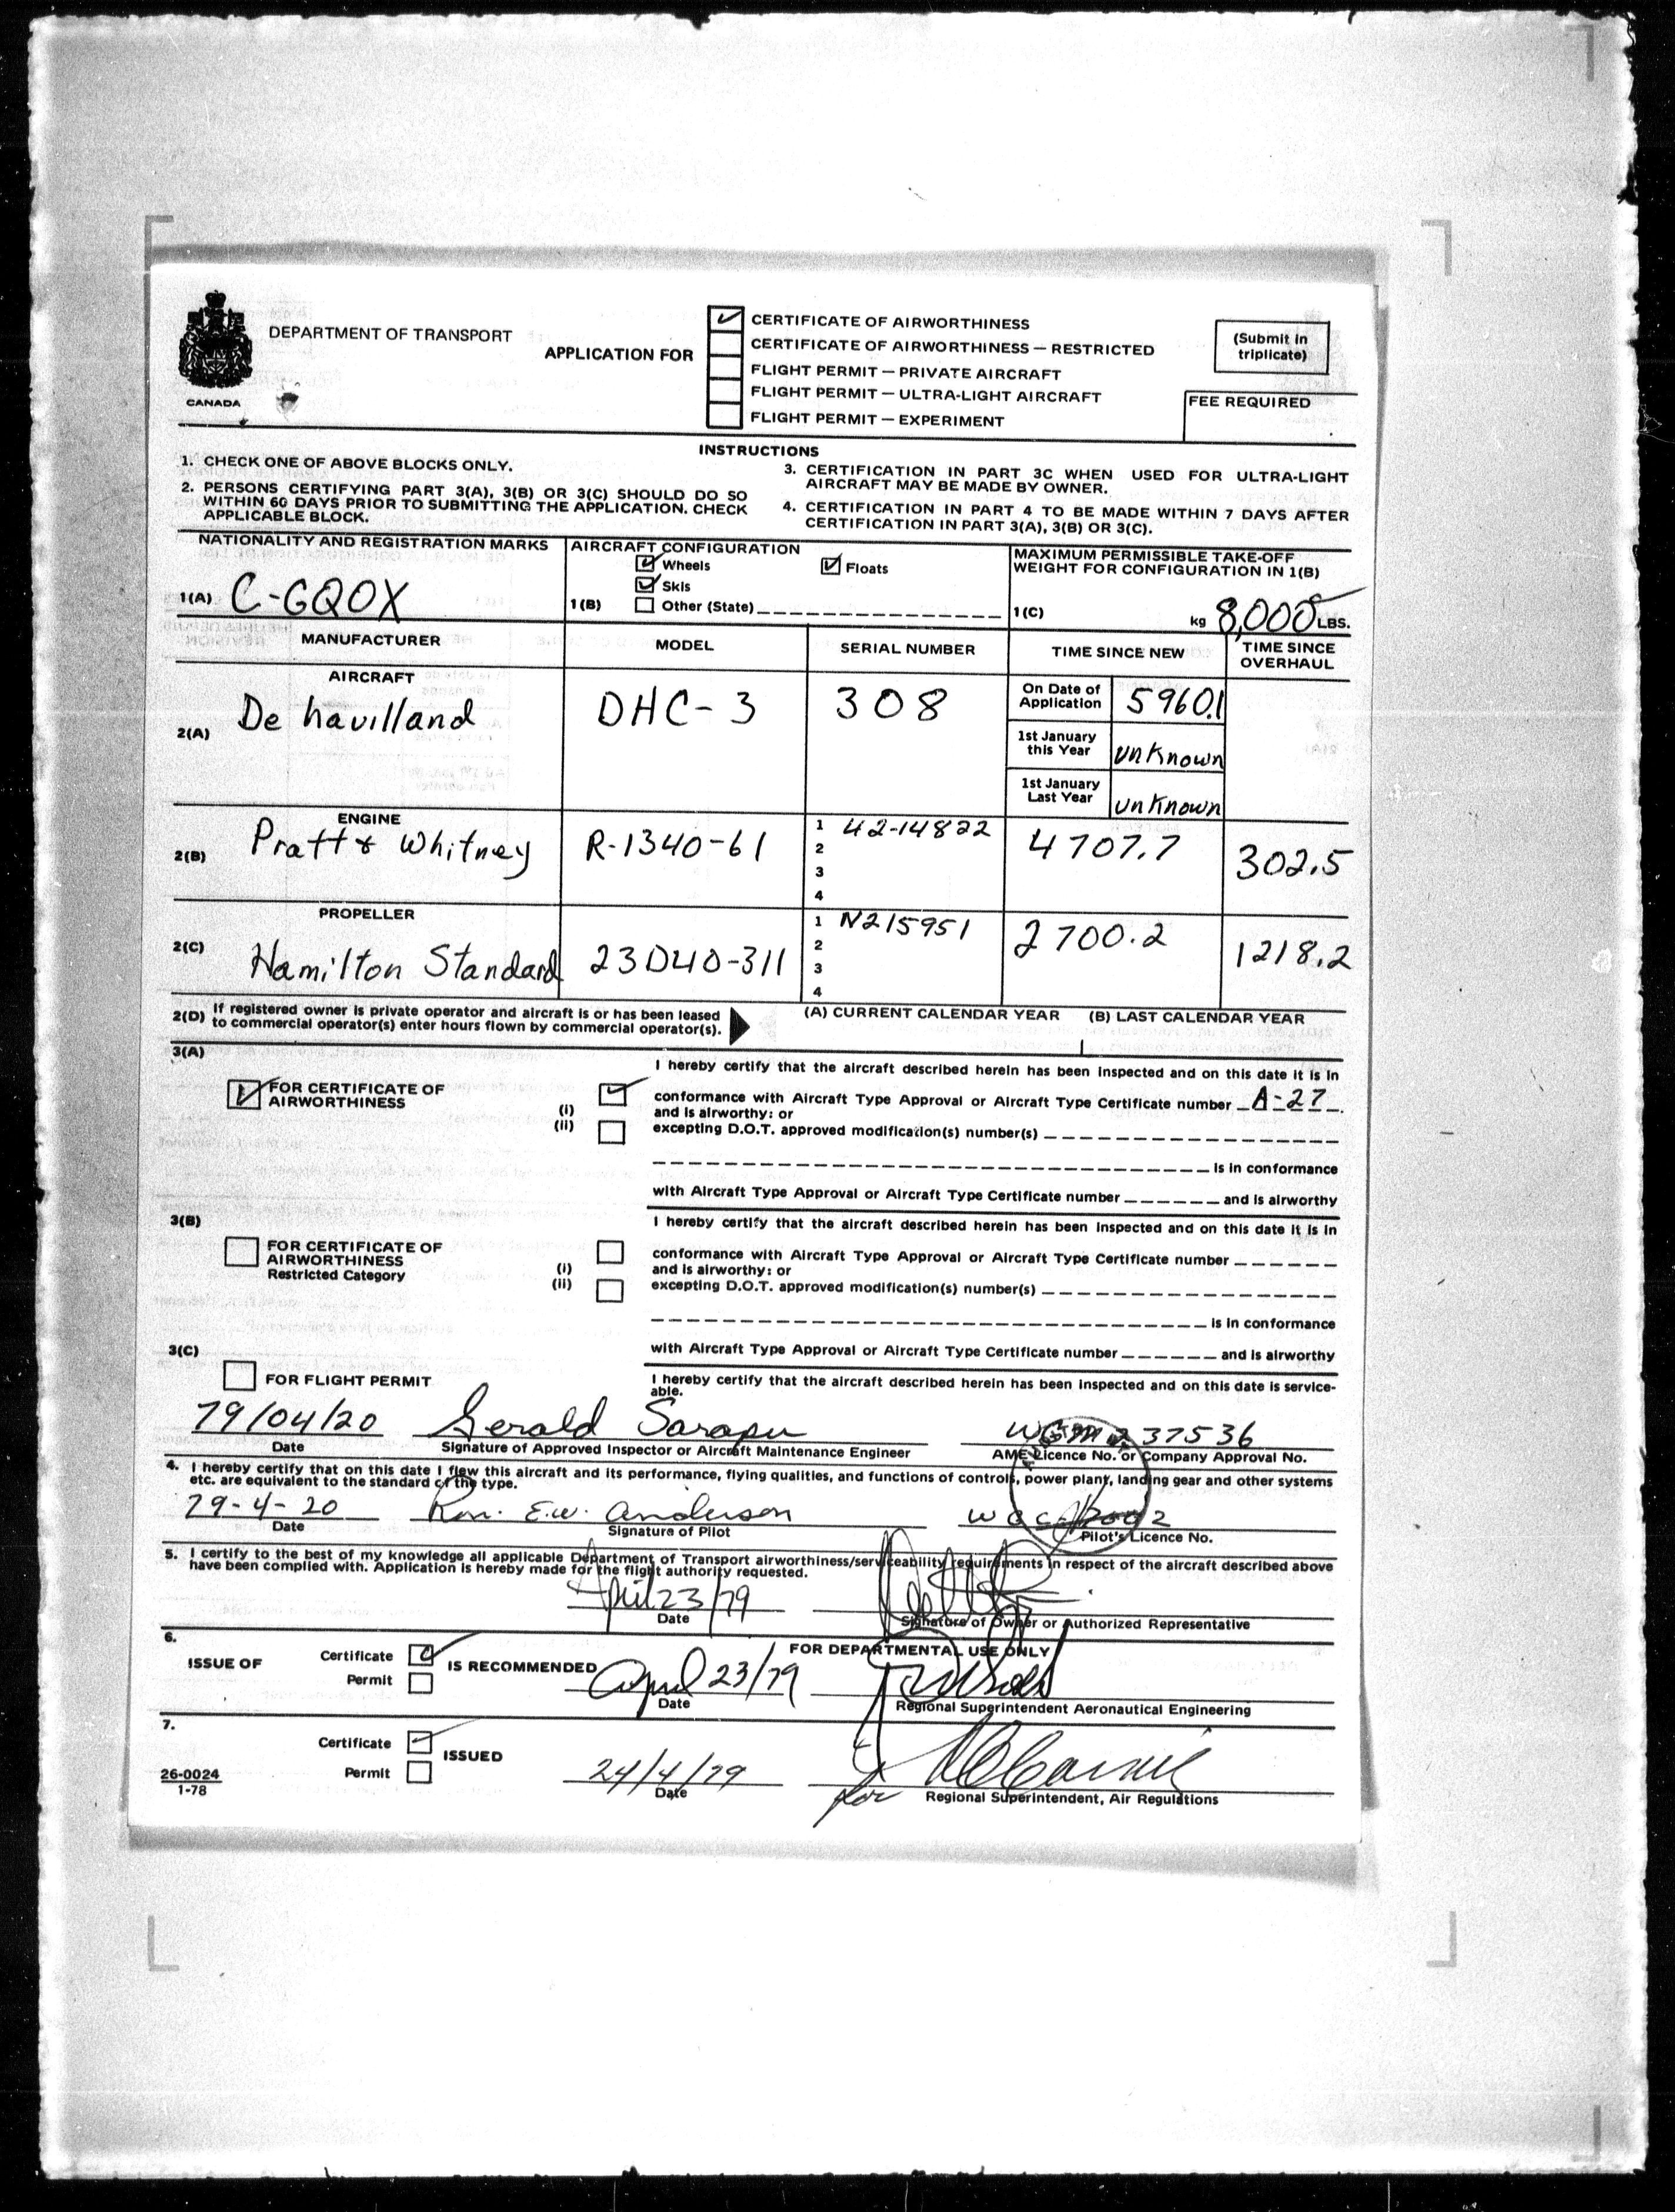 DEPARTMENT OF TRANSPORT
CANADA
APPLICATION FOR
CERTIFICATE OF AIRWORTHINESS
CERTIFICATE OF AIRWORTHINESS — RESTRICTED
FLIGHT PERMIT — PRIVATE AIRCRAFT
FLIGHT PERMIT — ULTRA-LIGHT AIRCRAFT
FLIGHT PERMIT — EXPERIMENT
(Submit in
triplicate)
FEE REQUIRED
INSTRUCTIONS
1. CHECK ONE OF ABOVE BLOCKS ONLY.
2. PERSONS CERTIFYING PART 3(A), 3(B) OR 3(C) SHOULD DO SO
WITHIN 60 DAYS PRIOR TO SUBMITTING THE APPLICATION. CHECK
APPLICABLE BLOCK.
3. CERTIFICATION IN PART 3C WHEN USED FOR ULTRA-LIGHT
AIRCRAFT MAY BE MADE BY OWNER.
4. CERTIFICATION IN PART 4 TO BE MADE WITHIN 7 DAYS AFTER
CERTIFICATION IN PART 3(A), 3(B) OR 3(C).
NATIONALITY AND REGISTRATION MARKS
1(A) C-GQOX
AIRCRAFT CONFIGURATION
Wheels Floats
Skis
1(B) Other (State)
MAXIMUM PERMISSIBLE TAKE-OFF
WEIGHT FOR CONFIGURATION IN 1(B)
1(C) kg 8,000 LBS.
MANUFACTURER MODEL SERIAL NUMBER TIME SINCE NEW TIME SINCE
OVERHAUL
AIRCRAFT
2(A) De havilland DHC-3 308
On Date of
Application 5960.1
1st January
this Year unknown
1st January
Last Year unknown
ENGINE
2(B) Pratt & Whitney R-1340-61
1 42-14822
2
3
4
4707.7 302.5
PROPELLER
2(C) Hamilton Standard 23D40-311
1 N215951
2
3
4
2700.2 1218.2
2(D) If registered owner is private operator and aircraft is or has been leased
to commercial operator(s) enter hours flown by commercial operator(s).
(A) CURRENT CALENDAR YEAR (B) LAST CALENDAR YEAR
3(A)
FOR CERTIFICATE OF
AIRWORTHINESS
I hereby certify that the aircraft described herein has been inspected and on this date it is in
(i) conformance with Aircraft Type Approval or Aircraft Type Certificate number A-27.
and is airworthy: or
(ii) excepting D.O.T. approved modification(s) number(s)
is in conformance
with Aircraft Type Approval or Aircraft Type Certificate number and is airworthy
3(B)
FOR CERTIFICATE OF
AIRWORTHINESS
Restricted Category
I hereby certify that the aircraft described herein has been inspected and on this date it is in
(i) conformance with Aircraft Type Approval or Aircraft Type Certificate number
and is airworthy: or
(ii) excepting D.O.T. approved modification(s) number(s)
is in conformance
with Aircraft Type Approval or Aircraft Type Certificate number and is airworthy
3(C)
FOR FLIGHT PERMIT
I hereby certify that the aircraft described herein has been inspected and on this date is service-
able.
79/04/20 Gerald Sarapu 37536
Date Signature of Approved Inspector or Aircraft Maintenance Engineer AME Licence No. or Company Approval No.
4. I hereby certify that on this date I flew this aircraft and its performance, flying qualities, and functions of controls, power plant, landing gear and other systems
etc. are equivalent to the standard of the type.
79-4-20 E.W. Anderson
Date Signature of Pilot Pilot's Licence No.
5. I certify to the best of my knowledge all applicable Department of Transport airworthiness/serviceability requirements in respect of the aircraft described above
have been complied with. Application is hereby made for the flight authority requested.
April 23/79
Date Signature of Owner or Authorized Representative
6. FOR DEPARTMENTAL USE ONLY
ISSUE OF Certificate
Permit
IS RECOMMENDED April 23/79
Date Regional Superintendent Aeronautical Engineering
7.
Certificate
Permit
ISSUED 24/4/79 for
Date Regional Superintendent, Air Regulations
26-0024
1-78